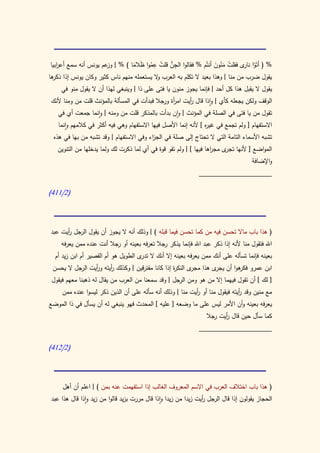 % ( أتَوْا ناري فقلتُ مَنُونَ أنتُم % فقالوا الجِنُّ قلتُ عِمُوا ظَلامَا ) % [ وزعم يونس أنه سمع أعرابيا
يقول ضرب من منا ] وهذا بعيد لا تكلم به العرب ولا يستعمله منهم ناس كثير وكان يونس إذا ذكرها
يقول لا يقبل هذا كل أحد [ فإنما يجوز منون يا فتى على ذا ] وينبغي لهذا أن لا يقول منو في
الوقف ولكن يجعله كأي ] وإذا قال رأيت امرأة ورجلا فبدأت في المسألة بالمؤنث قلت من ومنا لأنك
تقول من يا فتى في الصلة في المؤنث [ وإن بدأت بالمذكر قلت من ومنه ] وإنما جمعت أي في
الاستفهام [ ولم تجمع في غيره ] لأنه إنما الأصل فيها الاستفهام وهي فيه أكثر في كلامهم وإنما
تشبه الأسماء التامة التي لا تحتاج إلى صلة في الجزاء وفي الاستفهام [ وقد تشبه من بها في هذه
المواضع ] لأنها تجرى مجراها فيها [ ] ولم تقو قوة في أي لما ذكرت لك ولما يدخلها من التنوين
والإضافة
(411/2)
( هذا باب مالا تحسن فيه من كما تحسن فيما قبله ) [ وذلك أنه لا يجوز أن يقول الرجل رأيت عبد
الله فتقول منا لأنه إذا ذكر عبد الله فإنما يذكر رجلا تعرفه بعينه أو رجلا أنت عنده ممن يعرفه
بعينه فإنما تسأله على أنك ممن يعرفه بعينه إلا أنك لا تدرى الطويل هو أم القصير أم ابن زيد أم
ابن عمرو فكرهوا أن يجرى هذا مجرى النكرة إذا كانا مفترقين ] وكذلك رأيته ورأيت الرجل لا يحسن
[ لك ] أن تقول فيهما إلا من هو ومن الرجل [ وقد سمعنا من العرب من يقال له ذهبنا معهم فيقول
مع منين وقد رأيته فيقول منا أو رأيت منا ] وذلك أنه سأله على أن الذين ذكر ليسوا عنده ممن
يعرفه بعينه وأن الأمر ليس على ما وضعه [ عليه ] المحدث فهو ينبغي له أن يسأل في ذا الموضع
كما سأل حين قال رأيت رجلا
(412/2)
( هذا باب اختلاف العرب في الاسم المعروف الغالب إذا استفهمت عنه بمن ) [ اعلم أن أهل
الحجاز يقولون إذا قال الرجل رأيت زيدا من زيدا وإذا قال مررت بزيد قالوا من زيد وإذا قال هذا عبد